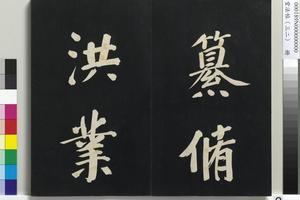 纂脩
洪業